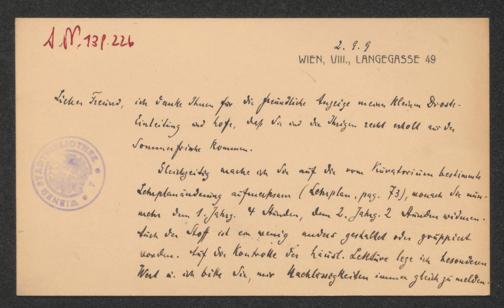 J.N. 139.226
2.9.9
WIEN, VIII., LANGEGASSE 49
Lieber Freund, ich danke Ihnen für die freundliche Anzeige meiner kleinen Droste-
Einleitung und hoffe, daß Sie und die Ihrigen recht erholt aus der
Sommerfrische kommen.
Gleichzeitig mache ich Sie auf die vom Kuratorium bestimmte
Lehrplanänderung aufmerksam (Lehrplan, pag. 73), wonach Sie nun-
mehr dem 1. Jahrg. 4 Stunden, dem 2. Jahrg. 2 Stunden widmen.
Auch der Stoff ist ein wenig anders gestaltet oder gruppiert
worden. Auf die Kontrolle der häusl. Lektüre lege ich besonderen
Wert u. ich bitte Sie, mir Nachlässigkeiten immer gleich zu melden.
WIENER STADTBIBLIOTHEK